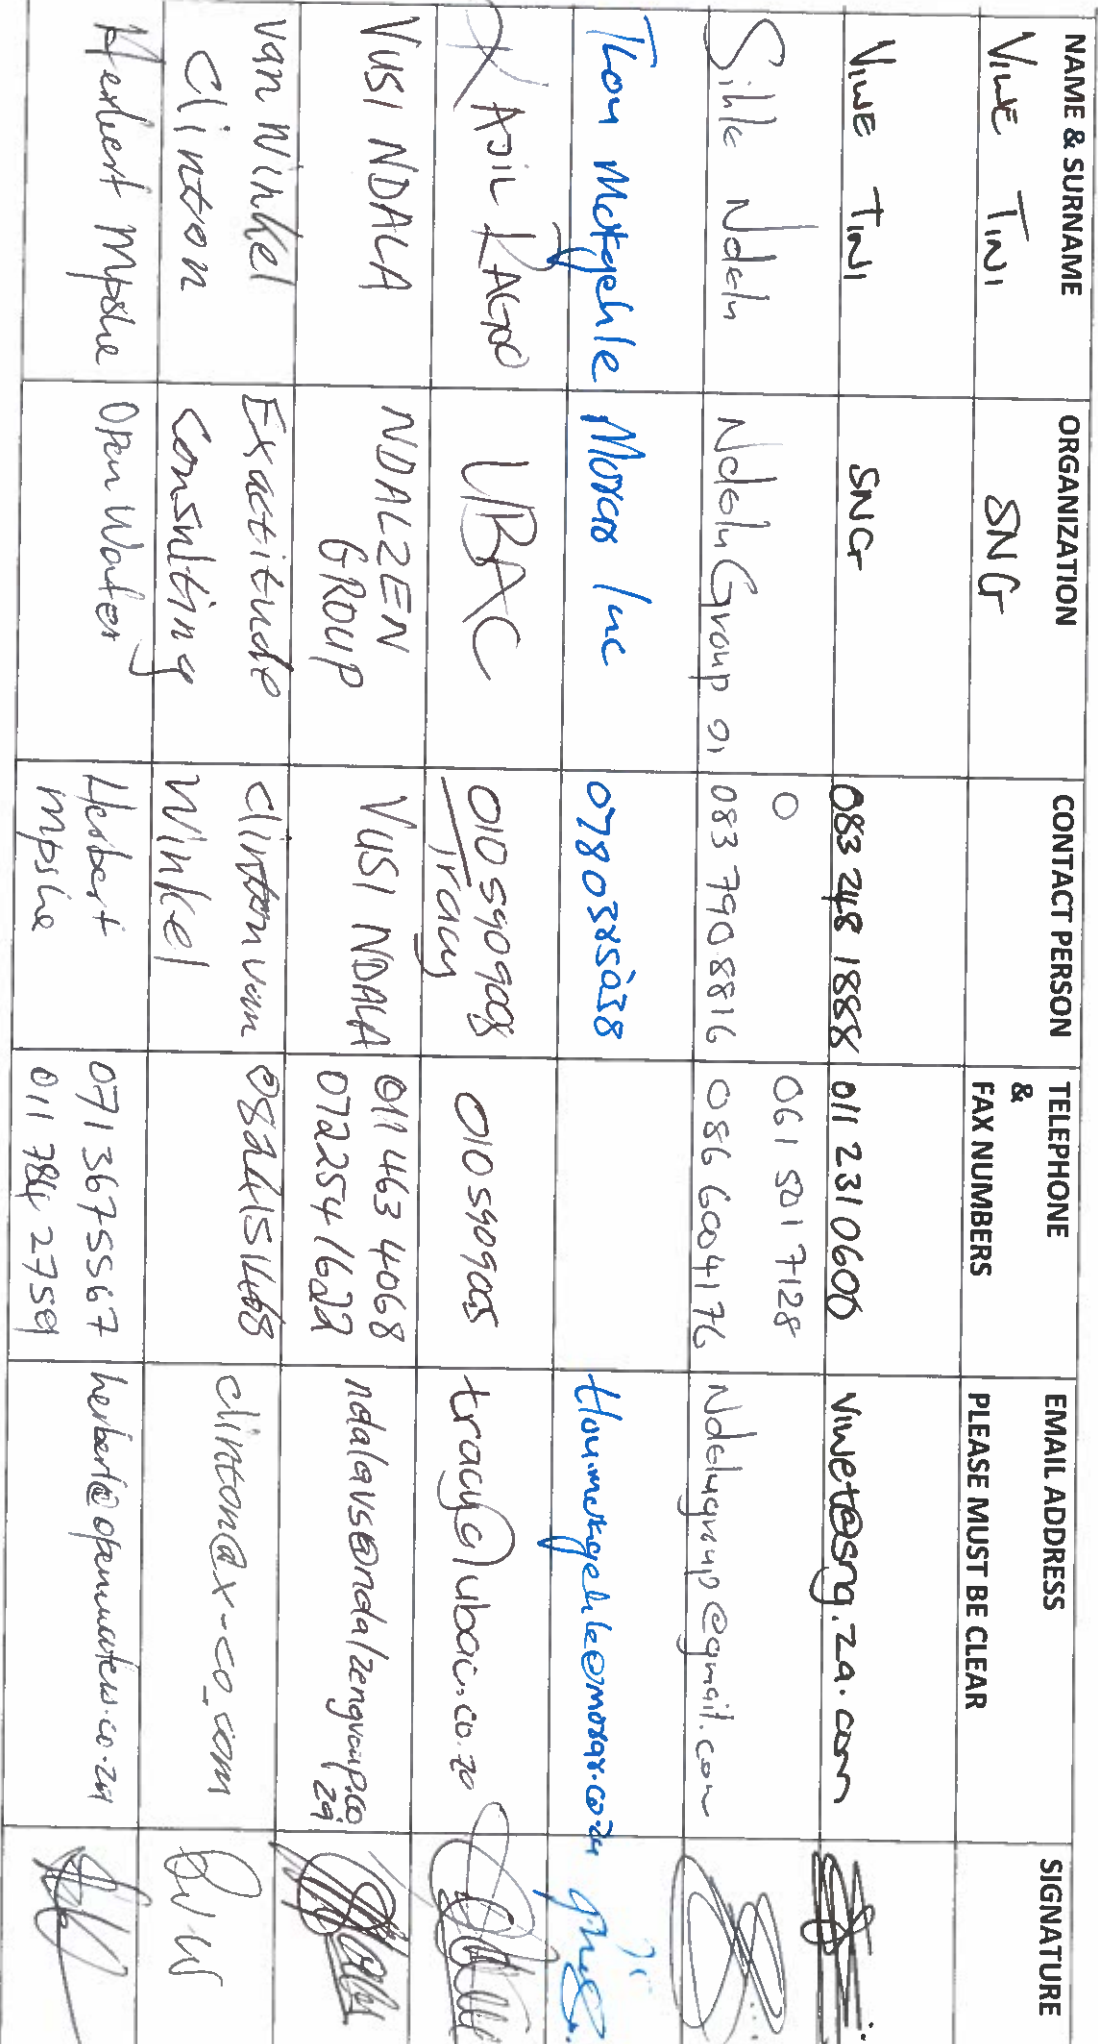 NAME & SURNAME ORGANIZATION CONTACT PERSON TELEPHONE & FAX NUMBERS EMAIL ADDRESS PLEASE MUST BE CLEAR SIGNATURE
VIWE TINI SNG
VIWE TINI SNG 083 248 1888 011 231 0600 viwet@sng.za.com
Sihle Ndlu Ndolu Group 083 790 8816 061 501 7128
086 6004176 Ndlugroup@gmail.com
Morar Inc 0780325038
UBAC 010 5909008 010 5909005 tracy@ubac.co.za
Tracy
VUSI NDALA NDALZEN GROUP VUSI NDALA 011 463 4068
072254 1622 ndalavs@ndalzengroup.co.za
van Winkel Clinton Exactitude Consulting Clinton van Winkel 0824151468 clinton@x-co.com
Herbert Mpshe Open Waters Herbert Mpshe 071 3675567
011 784 2759 herbert@openwaters.co.za